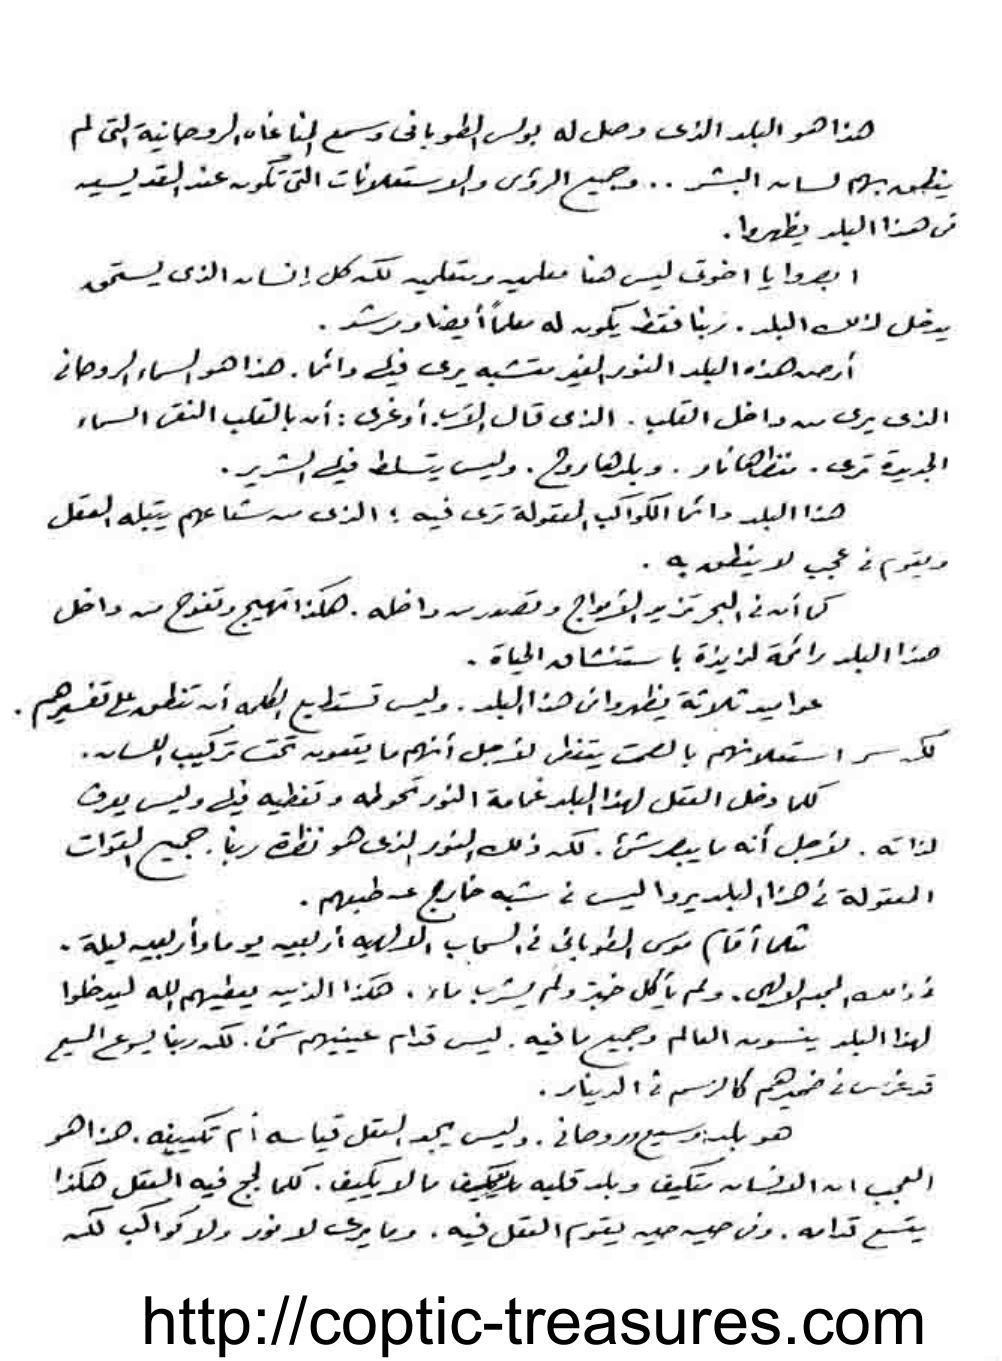 هذا هو البلد الذى وصل له بولس الطوبانى وسمع المناغاه الروحانية التى لم
ينطق بهم لسان البشر .. وجميع الرؤى والاستعلانات التى تكون عند القديسين
فى هذا البلد يظهروا .
ابصروا يا اخوتى ليس هنا معلمين ومتعلمين لكن كل إنسان الذى يستحق
يدخل لذلك البلد . ربنا فقط يكون له معلماً أيضا ومرشد .
أرض هذه البلد النور الغير متشبه يرى فيها دائما . هذا هو السماء الروحانى
الذى يرى من داخل القلب . الذى قال الأب أوغرى : أن بالقلب النقى السماء
الجديدة ترى . منظرها نار . وبلدها روح . وليس يتسلط فيها الشرير .
هذا البلد دائما الكواكب المعقولة ترى فيه ؛ الذى من شعاعهم يتبله العقل
ويقوم فى عجب لا ينطق به .
كما أن فى البحر تزيد الأمواج وتصدر من داخله . هكذا تهيج وتفوح من داخل
هذا البلد رائحة لذيذة باستنشاق الحياة .
عواميد ثلاثة يظهروا فى هذا البلد . وليس تستطيع الكلمة أن تنطق على تفسيرهم .
لكن سر استعلانهم بالصمت يتفضل لأجل أنهم ما يقعون تحت تركيب اللسان .
كلما دخل العقل لهذا البلد غمامة النور تحوطه وتغطيه فيها وليس يعرف
لذاته . لأجل أنه ما يبصر شئ . لكن ذلك النور الذى هو نظرة ربنا . جميع القوات
المعقولة فى هذا البلد يروا ليس فى شبه خارج عن طبعهم .
مثلما أقام موسى الطوبانى فى السحاب الالهية أربعين يوما وأربعين ليلة .
فى ذلك المجد الالهى . ولم يأكل خبز ولم يشرب ماء . هكذا الذين يعطيهم الله ليدخلوا
لهذا البلد ينسون العالم وجميع ما فيه . ليس قدام عينيهم شئ . لكن ربنا يسوع المسيح
قد غرس فى ضميرهم كالرسم فى الدينار .
هو بلد وسيع وروحانى . وليس يجد العقل قياسه أم تكييفه . هذا هو
العجب ان الانسان متكيف وبلد قلبه ما لا يكيف . كلما لجج فيه العقل هكذا
يتسع قدامه . وفى حين حين يقوم العقل فيه . وما يرى لا نور ولا كواكب لكن
http://coptic-treasures.com